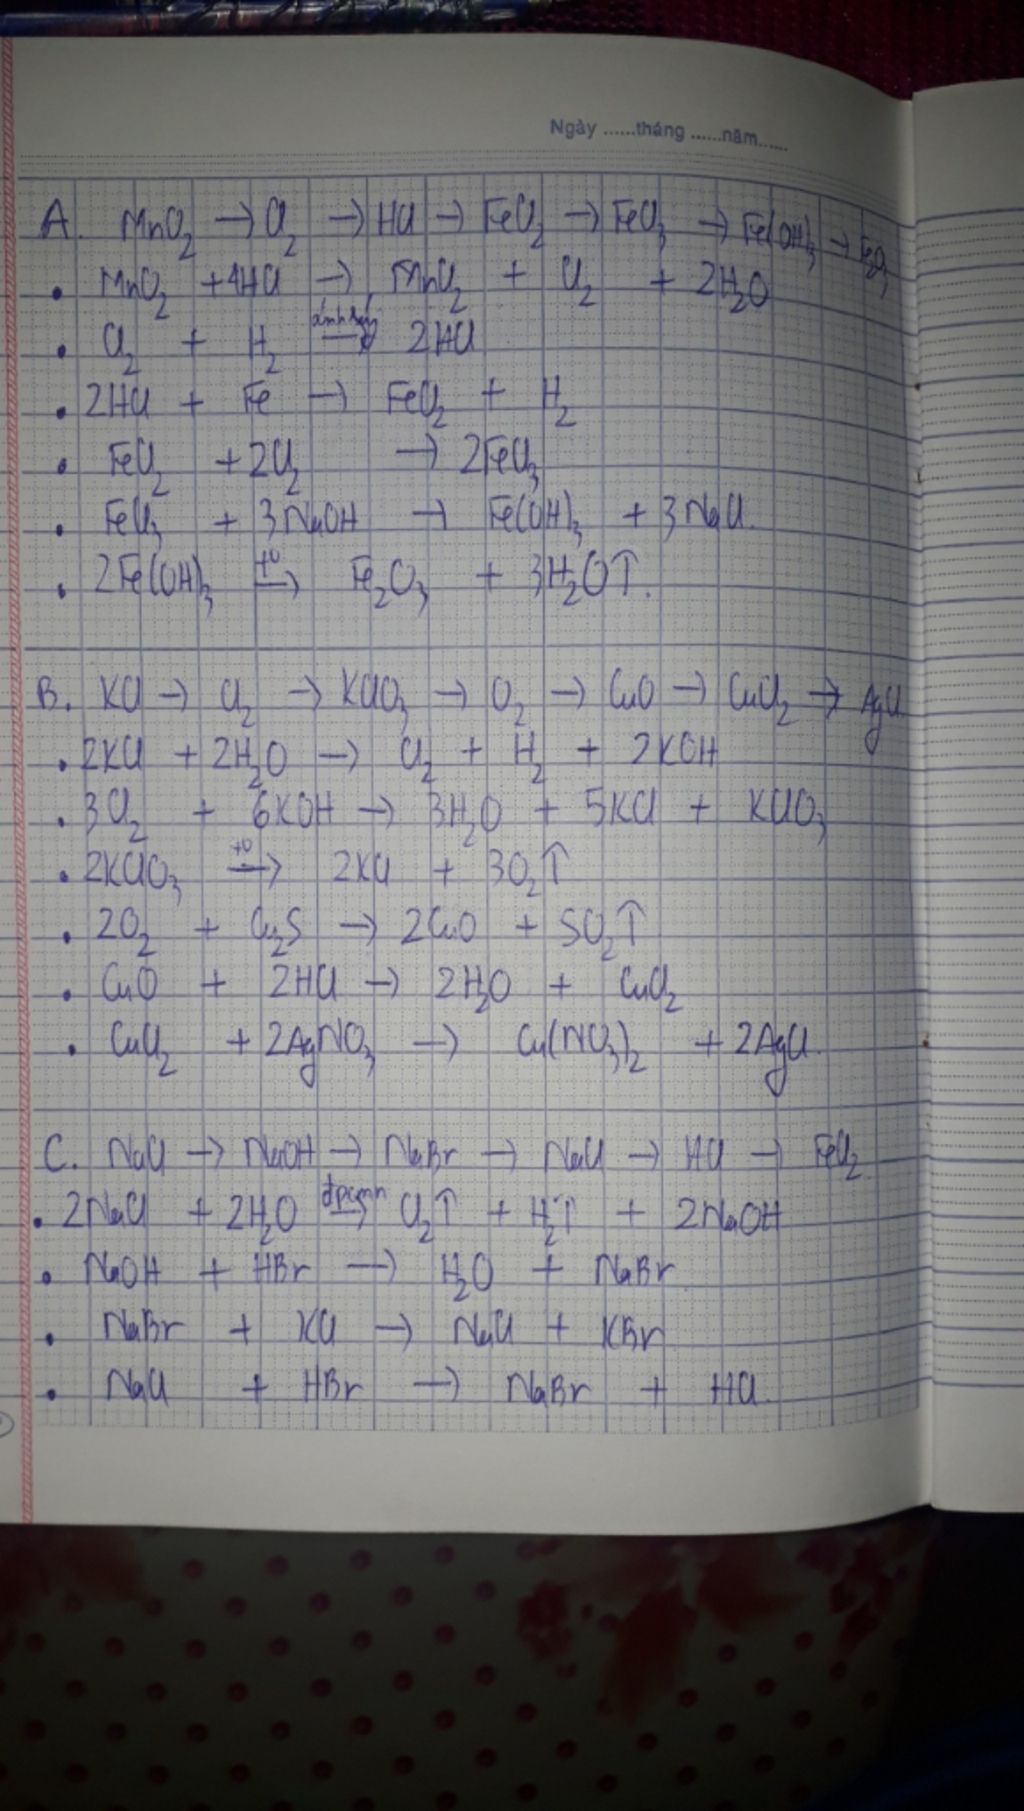 Ngày ......tháng ......năm......
A. MnO2 → Cl2 → HCl → FeCl2 → FeCl3 → Fe(OH)3 → Fe2O3
• MnO2 + 4HCl → MnCl2 + Cl2 + 2H2O
• Cl2 + H2 ánh sáng → 2HCl
• 2HCl + Fe → FeCl2 + H2
• FeCl2 + 2Cl2 → 2FeCl3
• FeCl3 + 3NaOH → Fe(OH)3 + 3NaCl.
• 2Fe(OH)3 t0 → Fe2O3 + 3H2O↑.
B. KCl → Cl2 → KClO3 → O2 → CuO → CuCl2 → AgCl
• 2KCl + 2H2O → Cl2 + H2 + 2KOH
• 3Cl2 + 6KOH → 3H2O + 5KCl + KClO3
• 2KClO3 t0 → 2KCl + 3O2↑
• 2O2 + Cu2S → 2CuO + SO2↑
• CuO + 2HCl → 2H2O + CuCl2
• CuCl2 + 2AgNO3 → Cu(NO3)2 + 2AgCl.
C. NaCl → NaOH → NaBr → NaCl → HCl → FeCl2
• 2NaCl + 2H2O đpcmn → Cl2↑ + H2↑ + 2NaOH
• NaOH + HBr → H2O + NaBr
• NaBr + KCl → NaCl + KBr
• NaCl + HBr → NaBr + HCl.